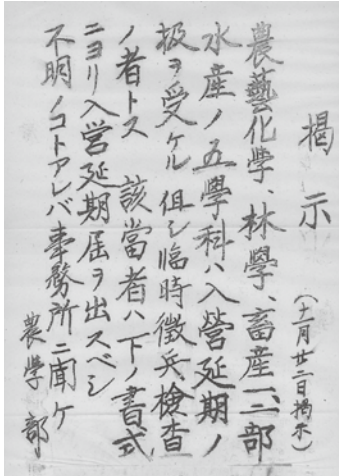 掲示
(十一月廿二日掲示)
農藝化學、林學、畜産一、二部
水産ノ五學科ハ入營延期ノ
扱ヲ受ケル但シ臨時徴兵檢査
ノ者トス 該當者ハ下ノ書式
ニヨリ入営延期届ヲ出スベシ
不明ノコトアレバ事務所ニ聞ケ
農學部